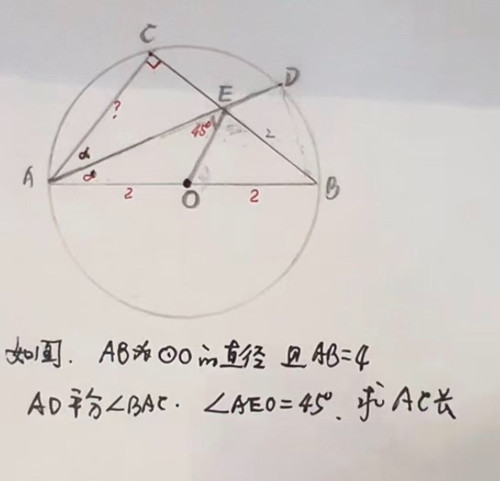 C
D
E
?
45°
2
α
α
A
2
O
2
B
如图. AB为⊙O的直径且AB=4
AD平分∠BAC. ∠AEO=45°. 求AC长